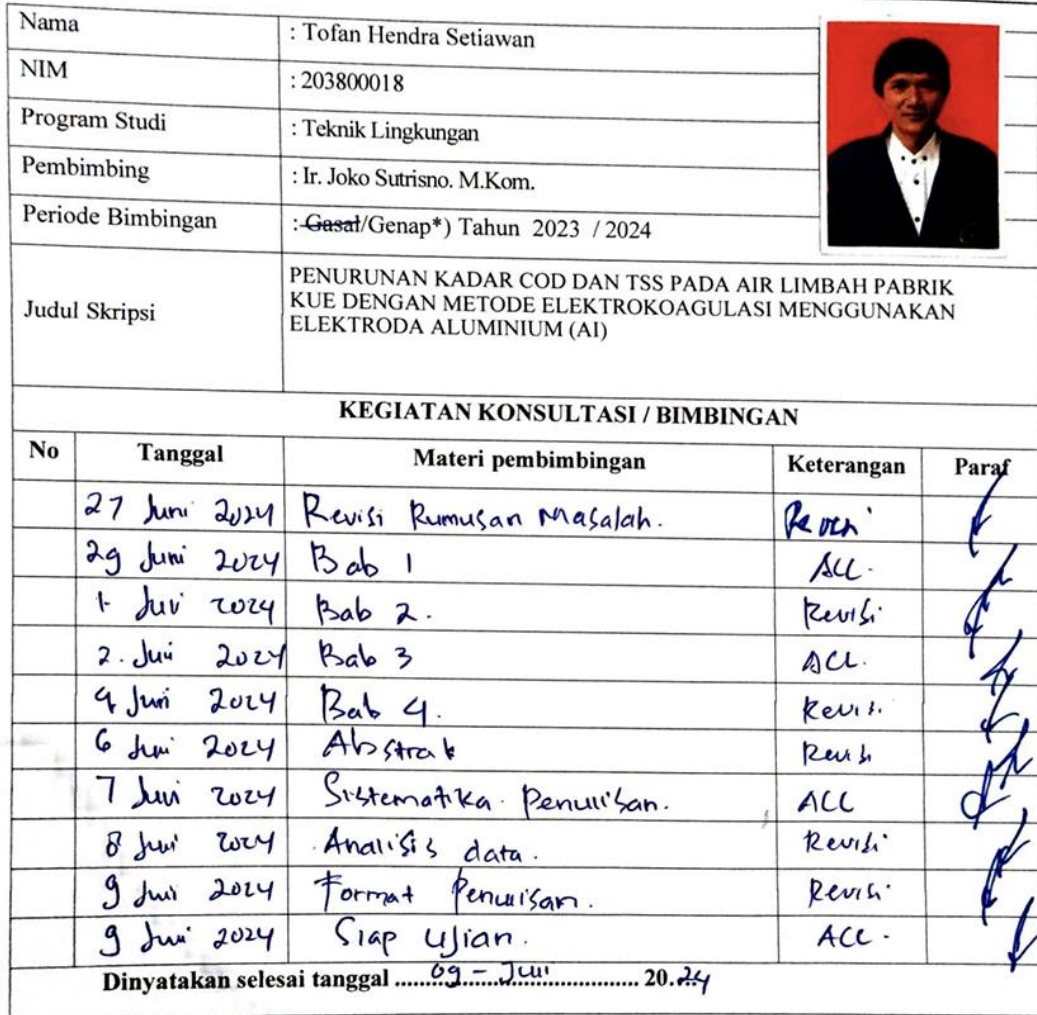 Nama : Tofan Hendra Setiawan
NIM : 203800018
Program Studi : Teknik Lingkungan
Pembimbing : Ir. Joko Sutrisno. M.Kom.
Periode Bimbingan : Gasal/Genap*) Tahun 2023 / 2024
Judul Skripsi
PENURUNAN KADAR COD DAN TSS PADA AIR LIMBAH PABRIK
KUE DENGAN METODE ELEKTROKOAGULASI MENGGUNAKAN
ELEKTRODA ALUMINIUM (AI)
KEGIATAN KONSULTASI / BIMBINGAN
No Tanggal Materi pembimbingan Keterangan Paraf
27 Juni 2024 Revisi Rumusan Masalah. Revisi
29 Juni 2024 Bab 1 ACC.
1. 2024 Bab 2. Revisi
2. 2024 Bab 3 ACC.
4 2024 Bab 4. Revisi
6 2024 Abstrak Revisi
7 2024 Sistematika Penulisan. ACC
8 2024 Analisis data. Revisi
9 2024 Format Penulisan. Revisi
9 2024 Siap Ujian. ACC.
Dinyatakan selesai tanggal 09 - Juli 2024